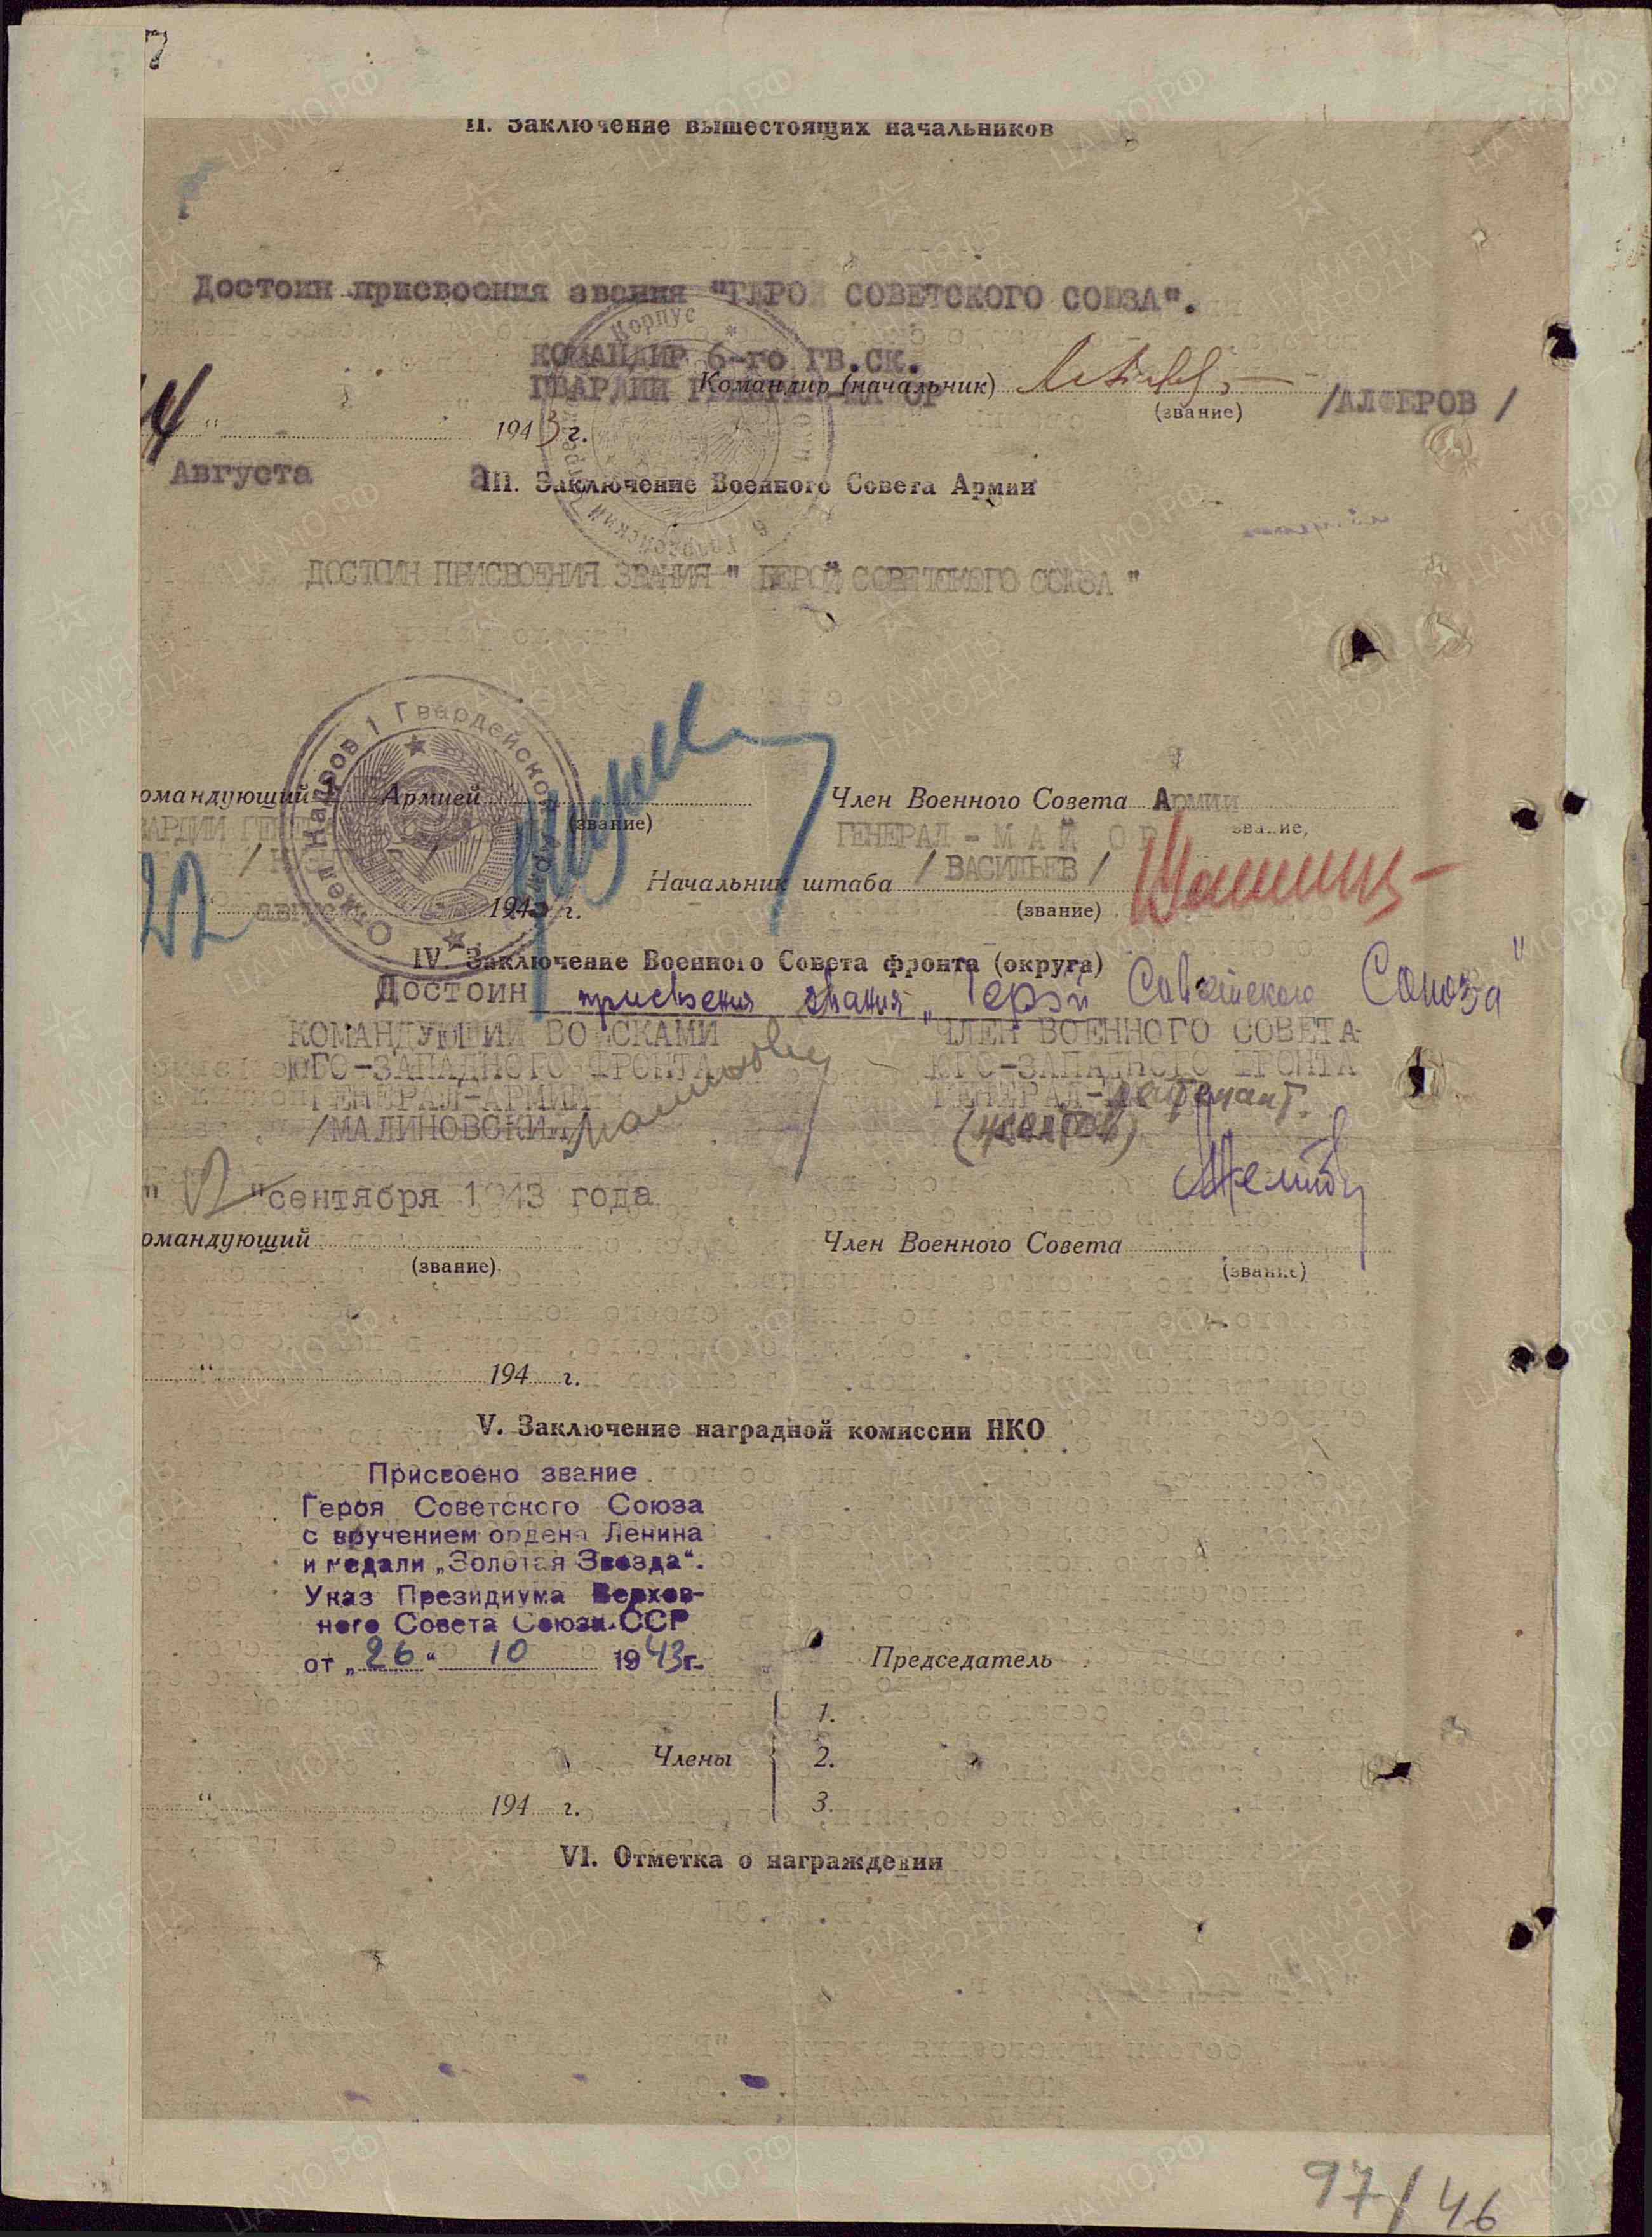 II. Заключение вышестоящих начальников
Достоин присвоения звания "ГЕРОЙ СОВЕТСКОГО СОЮЗА".
КОМАНДИР 6-го ГВ.СК.
ГВАРДИИ ГЕНЕРАЛ-МАЙОР
Командир (начальник)
(звание)
/АЛФЕРОВ /
14 " 1943 г.
Августа
III. Заключение Военного Совета Армии
ДОСТОИН ПРИСВОЕНИЯ ЗВАНИЯ " ГЕРОЙ СОВЕТСКОГО СОЮЗА "
Отдел Кадров 1 Гвардейской
омандующий 1 Армией
(звание)
Член Военного Совета Армии
звание,
ГЕНЕРАЛ - М А Й О Р
/ ВАСИЛЬЕВ /
Начальник штаба
(звание)
22 " августа 1943 г.
IV. Заключение Военного Совета фронта (округа)
Достоин присвоения звания „Герой Советского Союза"
КОМАНДУЮЩИЙ ВОЙСКАМИ
ЮГО-ЗАПАДНОГО ФРОНТА
ГЕНЕРАЛ-АРМИИ
/МАЛИНОВСКИЙ/
ЧЛЕН ВОЕННОГО СОВЕТА
ЮГО-ЗАПАДНОГО ФРОНТА
ГЕНЕРАЛ-лейтенант.
(Желтов)
" 12 "сентября 1943 года
омандующий
(звание)
Член Военного Совета
(звание)
" 194 г.
V. Заключение наградной комиссии НКО
Присвоено звание
Героя Советского Союза
с вручением ордена Ленина
и медали „Золотая Звезда".
Указ Президиума Верхов-
ного Совета Союза ССР
от „26" 10 1943г.
Председатель
Члены
1.
2.
3.
" 194 г.
VI. Отметка о награждении
97/46